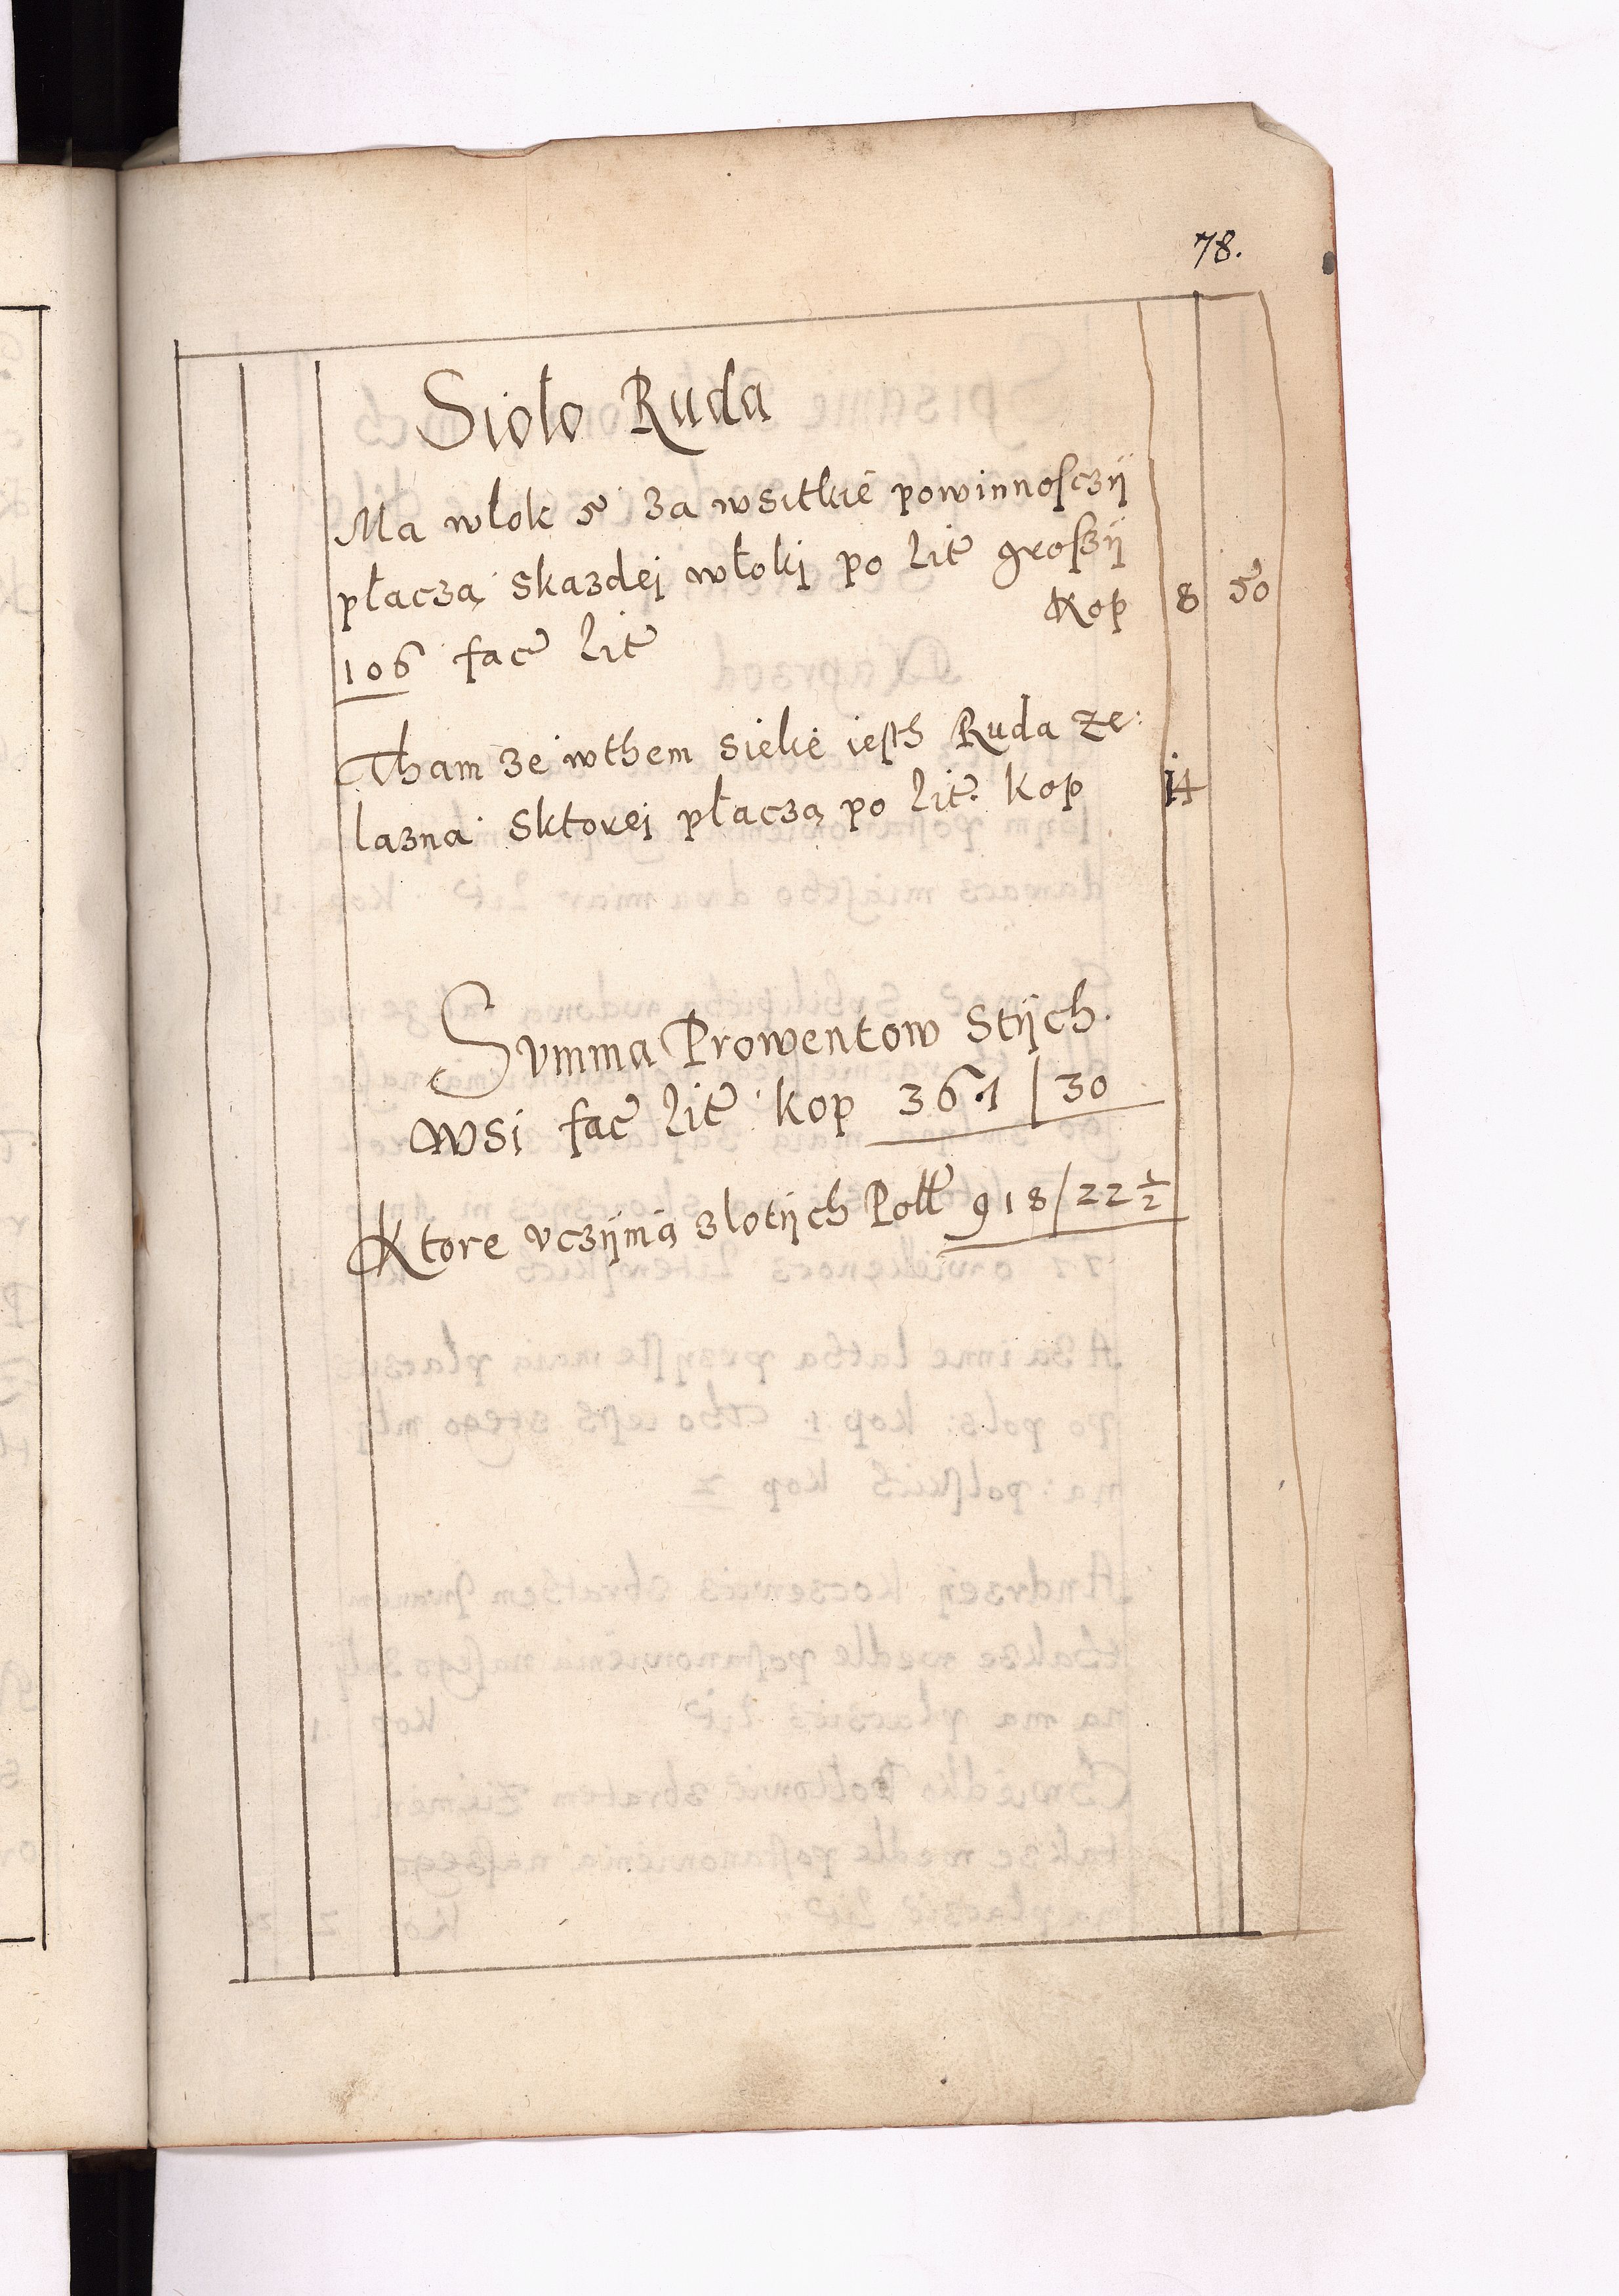 78.
Sioło Ruda
Ma włok 5 za wsitkie powinnosczÿ
płaczą skazdei włoki po lit groszÿ
106 facˀ lit Kop 8 50
Tham ze wthem sielie iesth Ruda ze:
lazna sktorei płaczą po lit. kop 14
Summa Prowentow Stÿch
wsi facˀ lit kop 361 | 30
Ktore vczÿnią zlotÿch Poll 918 / 22 1/2